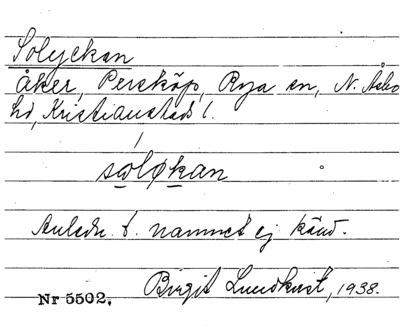 Solyckan
Åker, Persköp, Rya sn, N. Åsbo
hd, Kristianstads l.
sọlø̣kan
Anledn. t. namnet ej känd.
Birgit Lundkvist, 1938.
Nr 5502.